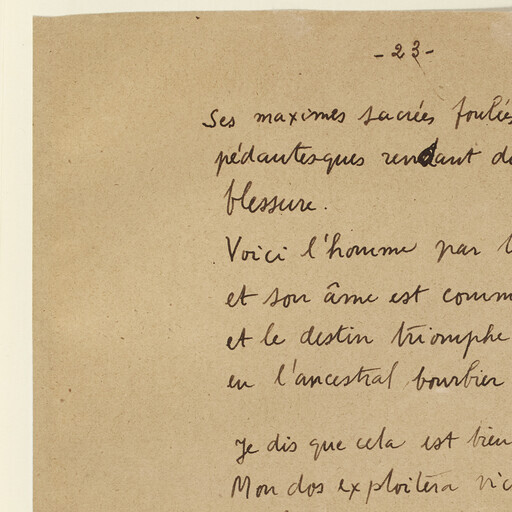 - 23 -
Ses maximes sacrées foulées
pédantesques rendant
blessure.
Voici l'homme par
et son âme est comm
et le destin triomphe
en l'ancestral bourbier
Je dis que cela est bien
Mon dos exploitera vic